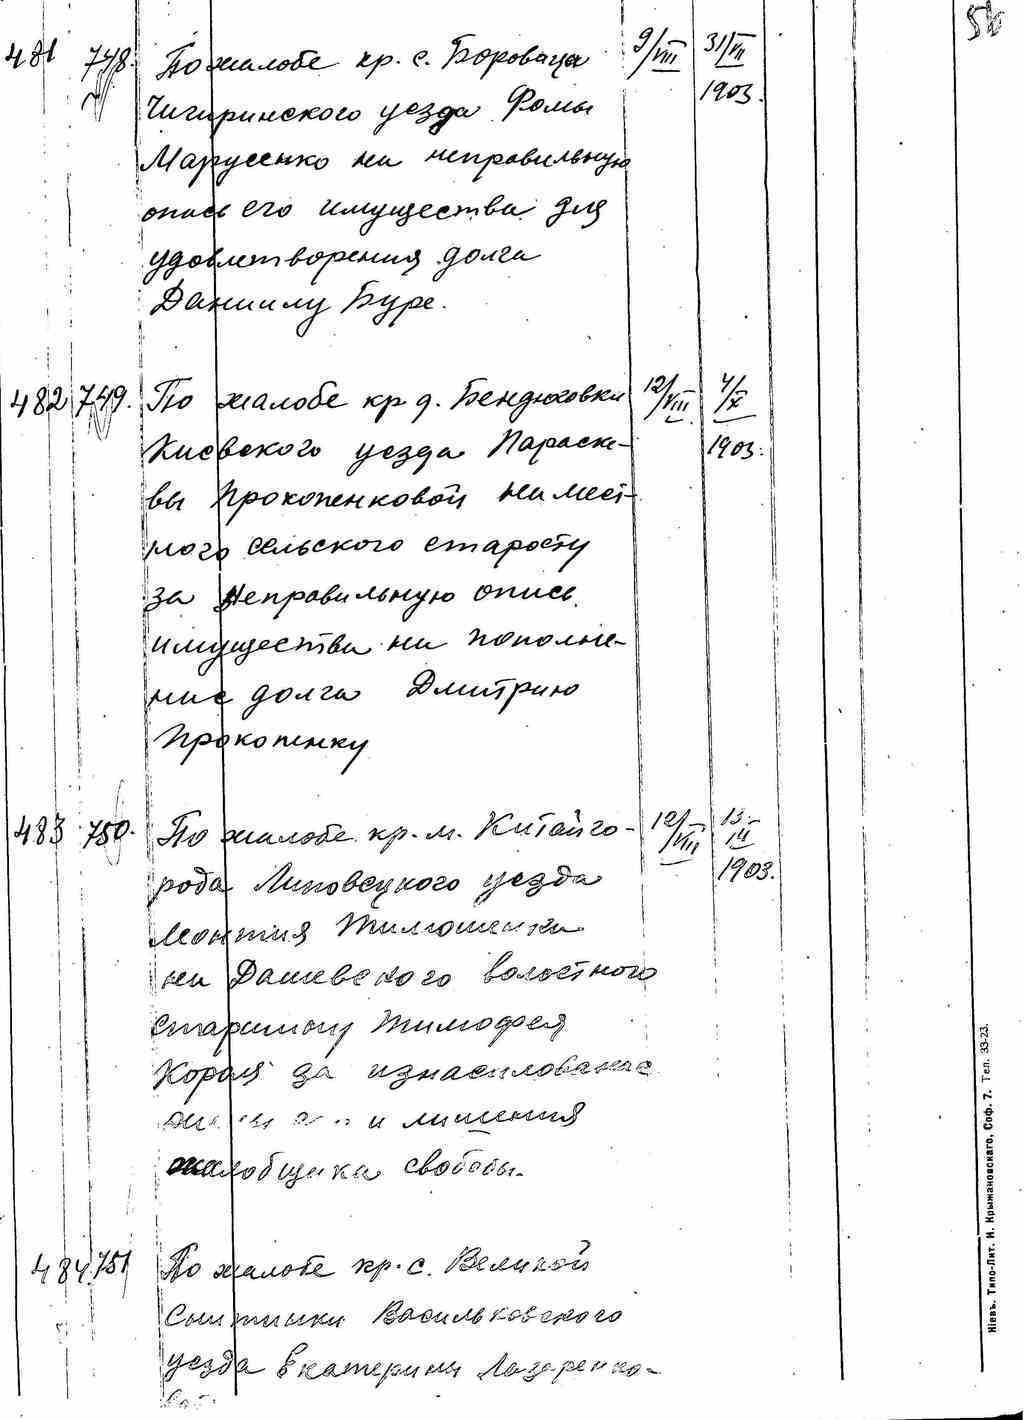 56
481 748. По жалобе кр. с. Боровица 9/VIII 31/VII
Чигиринского уезда Фомы 1903.
Марусенко на неправильную
опись его имущества для
удовлетворения долга
Даниилу Буре.
482 749. По жалобе кр д. Бендюговки 12/VIII 4/X
Киевского уезда Параске- 1903.
вы Прокопенковой на мест-
ного сельского старосту
за неправильную опись
имущества на пополне-
ние долга Дмитрию
Прокопенку
483 750. По жалобе кр. м. Китайго- 12/VIII 13/III
рода Липовецкого уезда 1903.
Леонтия Тимошенка
на Дашевского волостного
старшину Тимофея
Короля за изнасилование
и лишения
жалобщика свободы.
484 751 По жалобе кр. с. Великой
Снитинки Васильковского
уезда Екатерины Лазаренко-
вой
Кіевъ. Типо-Лит. И. Крыжановскаго, Соф. 7. Тел. 33-23.